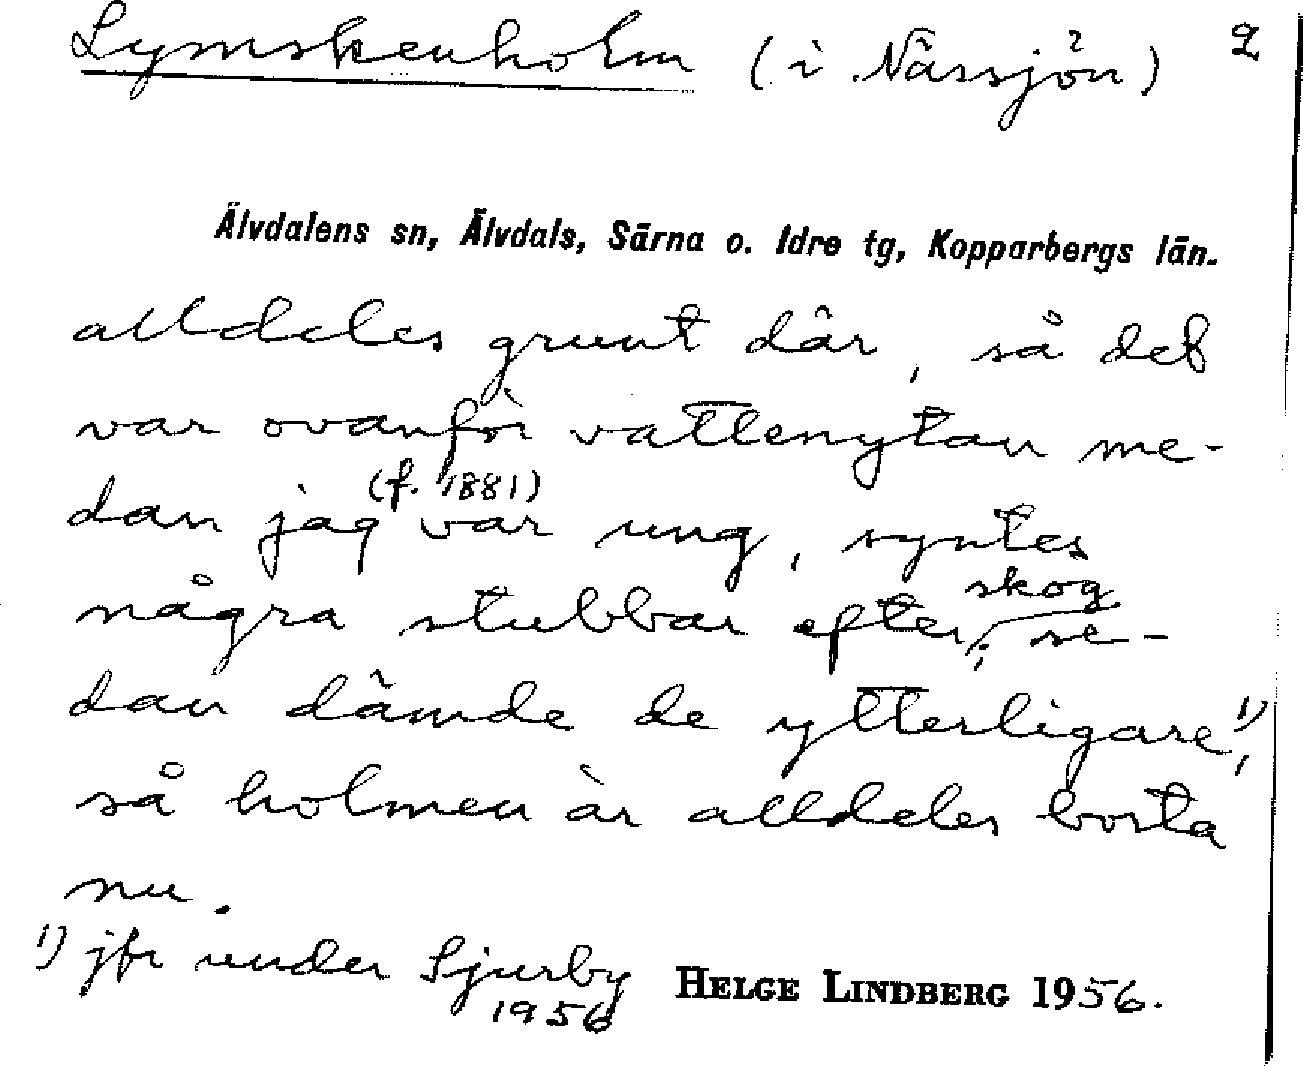 Lymskenholm (i Nässjön) 2
Älvdalens sn, Älvdals, Särna o. Idre tg, Kopparbergs län.
alldeles grunt där, så det
var ovanför vattenytan me-
dan jag (f. 1881) var ung, syntes
några stubbar efter skog; se-
dan dämde de ytterligare 1),
så holmen är alldeles borta
nu.
1) jfr under Sjurby
1956
HELGE LINDBERG 1956.